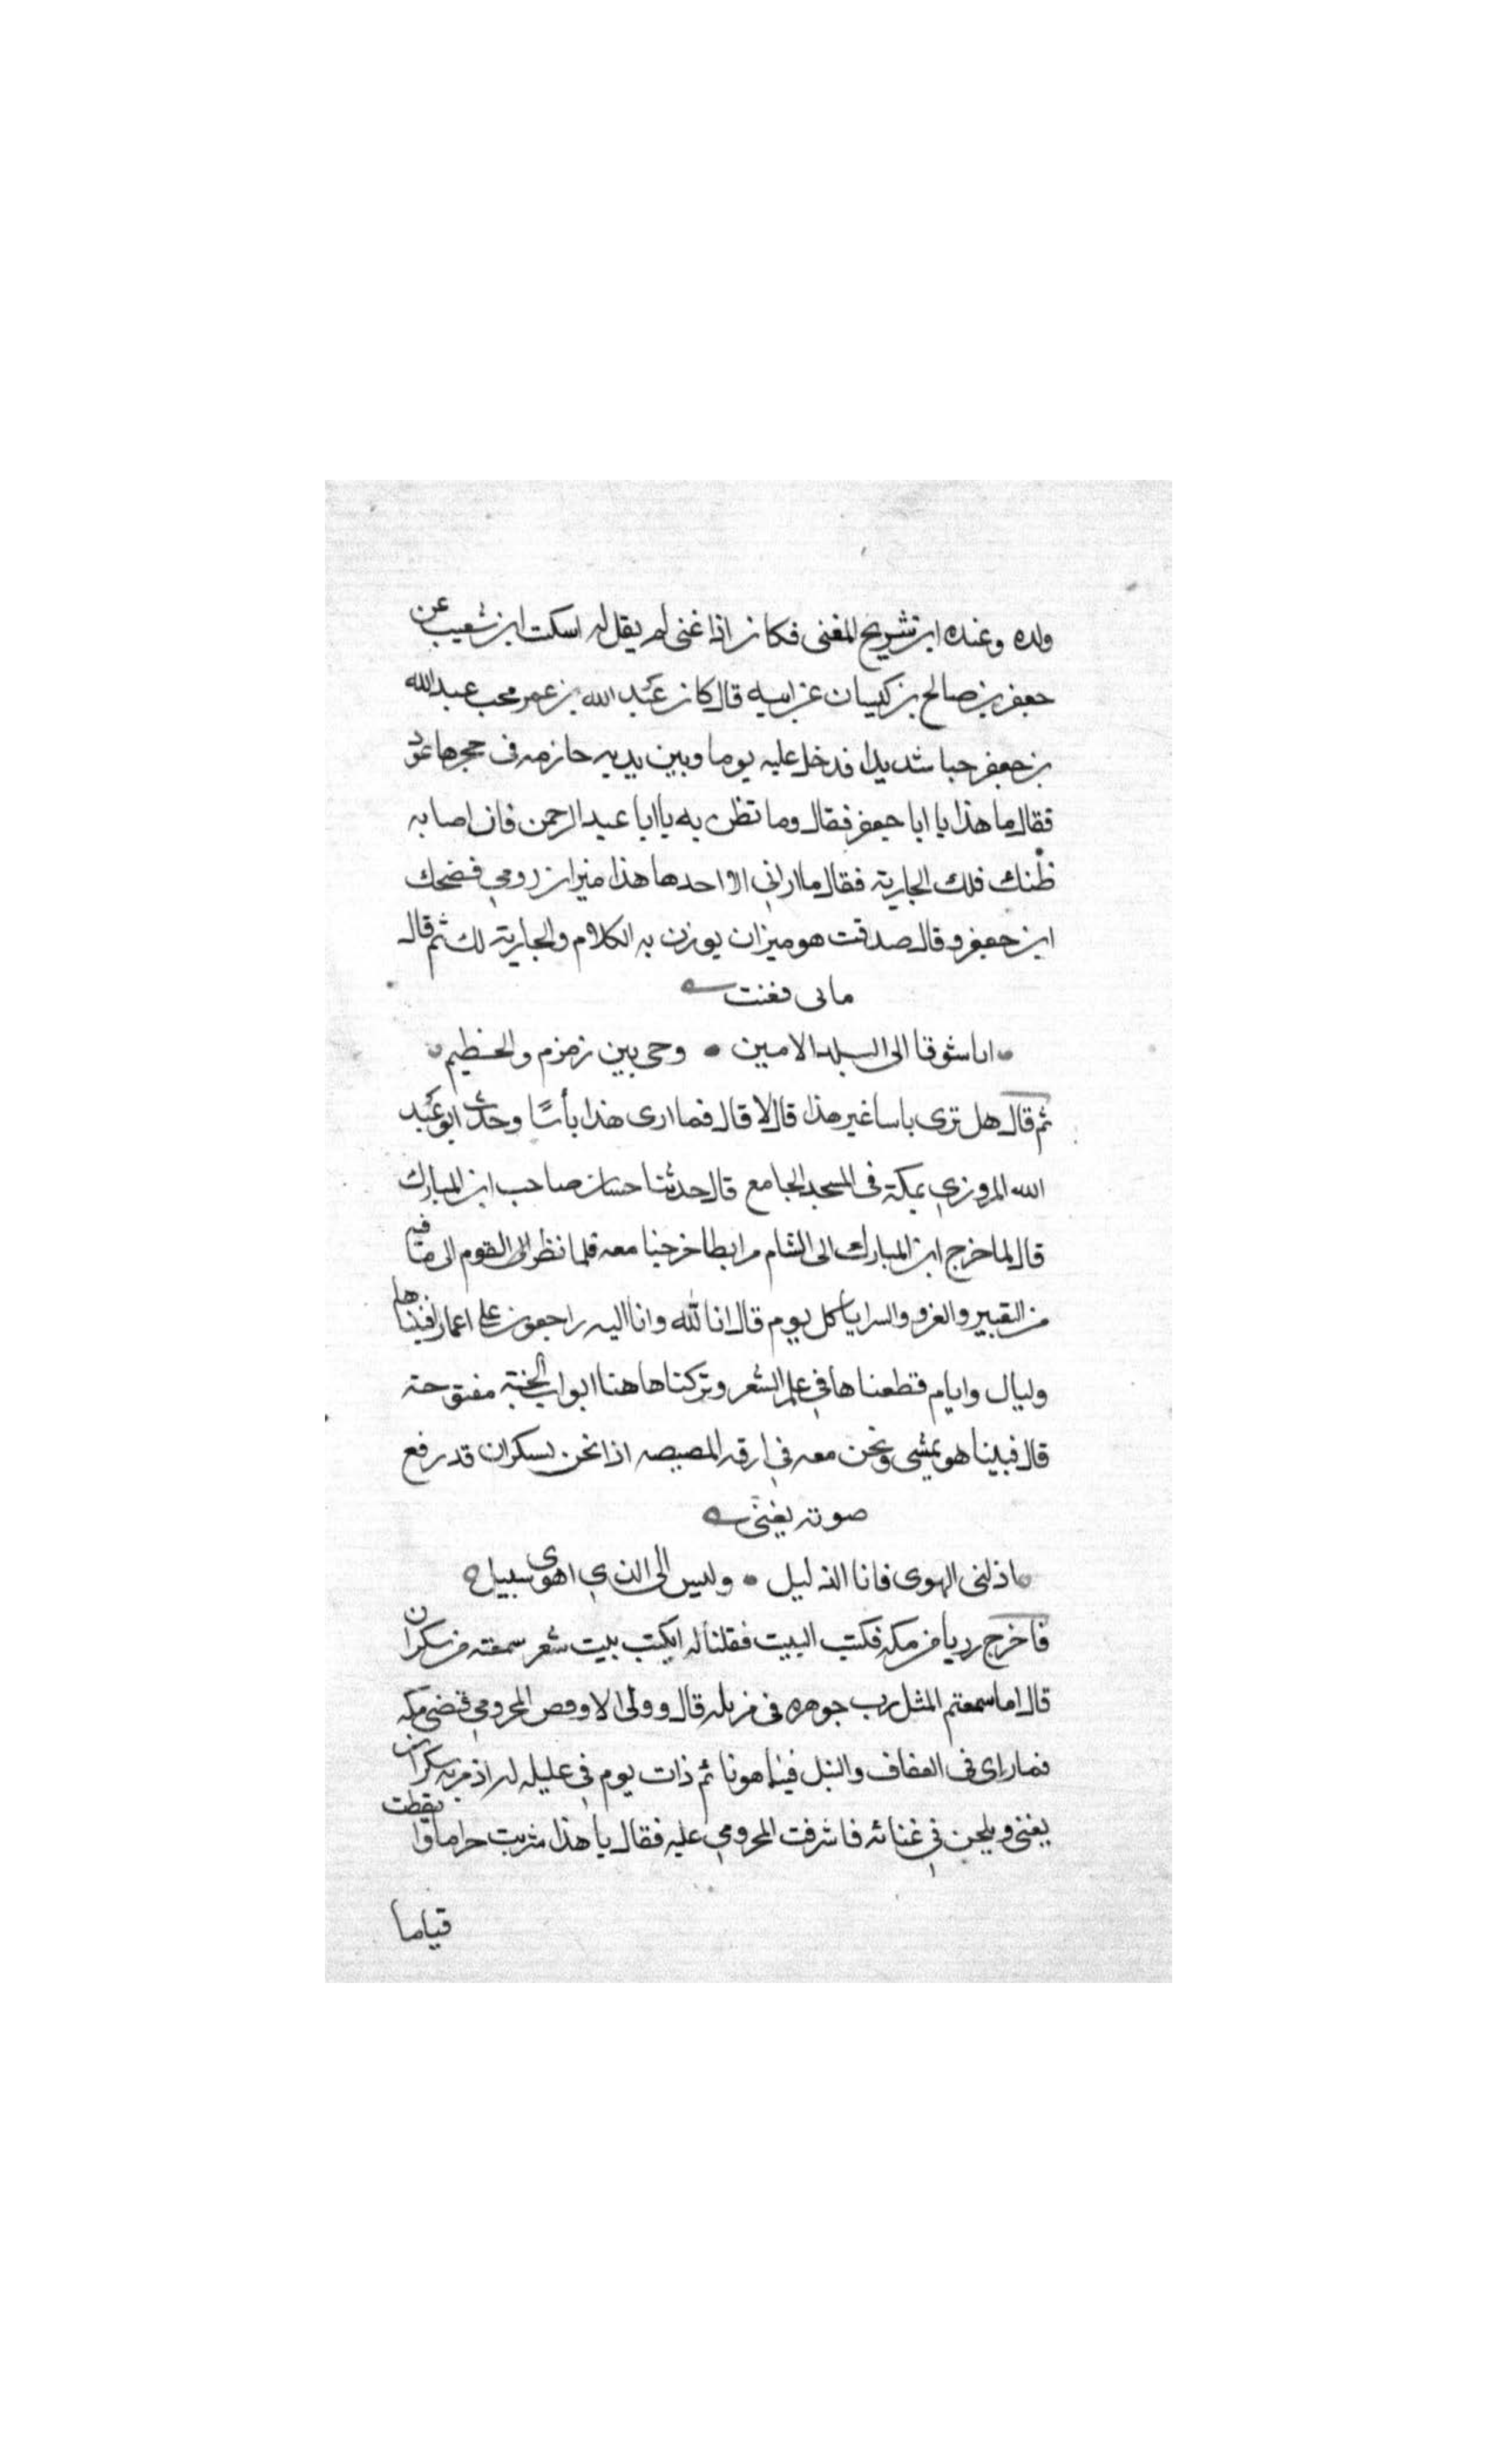 ولده وعنده ابن شريح المغنى فكان اذا غنى لم يقل له اسكت ابن شعيب عن
جعفر بن صالح بن كيسان عن ابيه قال كان عبد الله بن عمر محب عبد الله
بن جعفر حبا شديدا فدخل عليه يوما وبين يديه حازمه فى حجرها عود
فقال ما هذا يا ابا جعفر فقال وما تظن به يا ابا عبد الرحمن فان اصابه
ظنك فلك الجارية فقال ما ارانى الا احدها هذا ميزان رومي فضحك
ابن جعفر وقال صدقت هو ميزان يوزن به الكلام والجارية لك ثم قال
هاتى فغنت
اىا شوقا الى البلد الامين • وحى بين زمزم والحظيم
ثم قال هل ترى باسا غير هذا قال لا قال فما ارى هذا بأسًا وحدث ابو عبد
الله المروزي بمكة فى المسجد الجامع قال حدثنا حسان صاحب ابن المبارك
قال لما خرج ابن المبارك الى الشام مرابطا خرجنا معه فلما نظر الى القوم الى ما فيه
من التغيير والغزو والسرايا كل يوم قال انا لله وانا اليه راجعون على اعمار افنيناها
وليال وايام قطعناها في علم الشعر وتركنا هاهنا ابواب الجنة مفتوحة
قال فبينا هو يمشى ونحن معه في ازقه المصيصه اذا نحن بسكران قد رفع
صوته يغنى
اذلنى الهوى فانا الذليل • وليس الى الذي اهوى سبيل
فاخرج من مكه فكتب البيت فقلنا له ايكتب بيت شعر سمعته من سكران
قال اما سمعتم المثل رب جوهره فى مزبله قال وولى الاوقص المخزومي قضى مكه
فما راى فى العفاف والنبل فبينا هو نائم ذات يوم في عليله له اذ مر به سكران
يغنى ويلحن في غنائه فاشرفت المخزومي عليه فقال يا هذا شربت حراما وايقظت
قياما